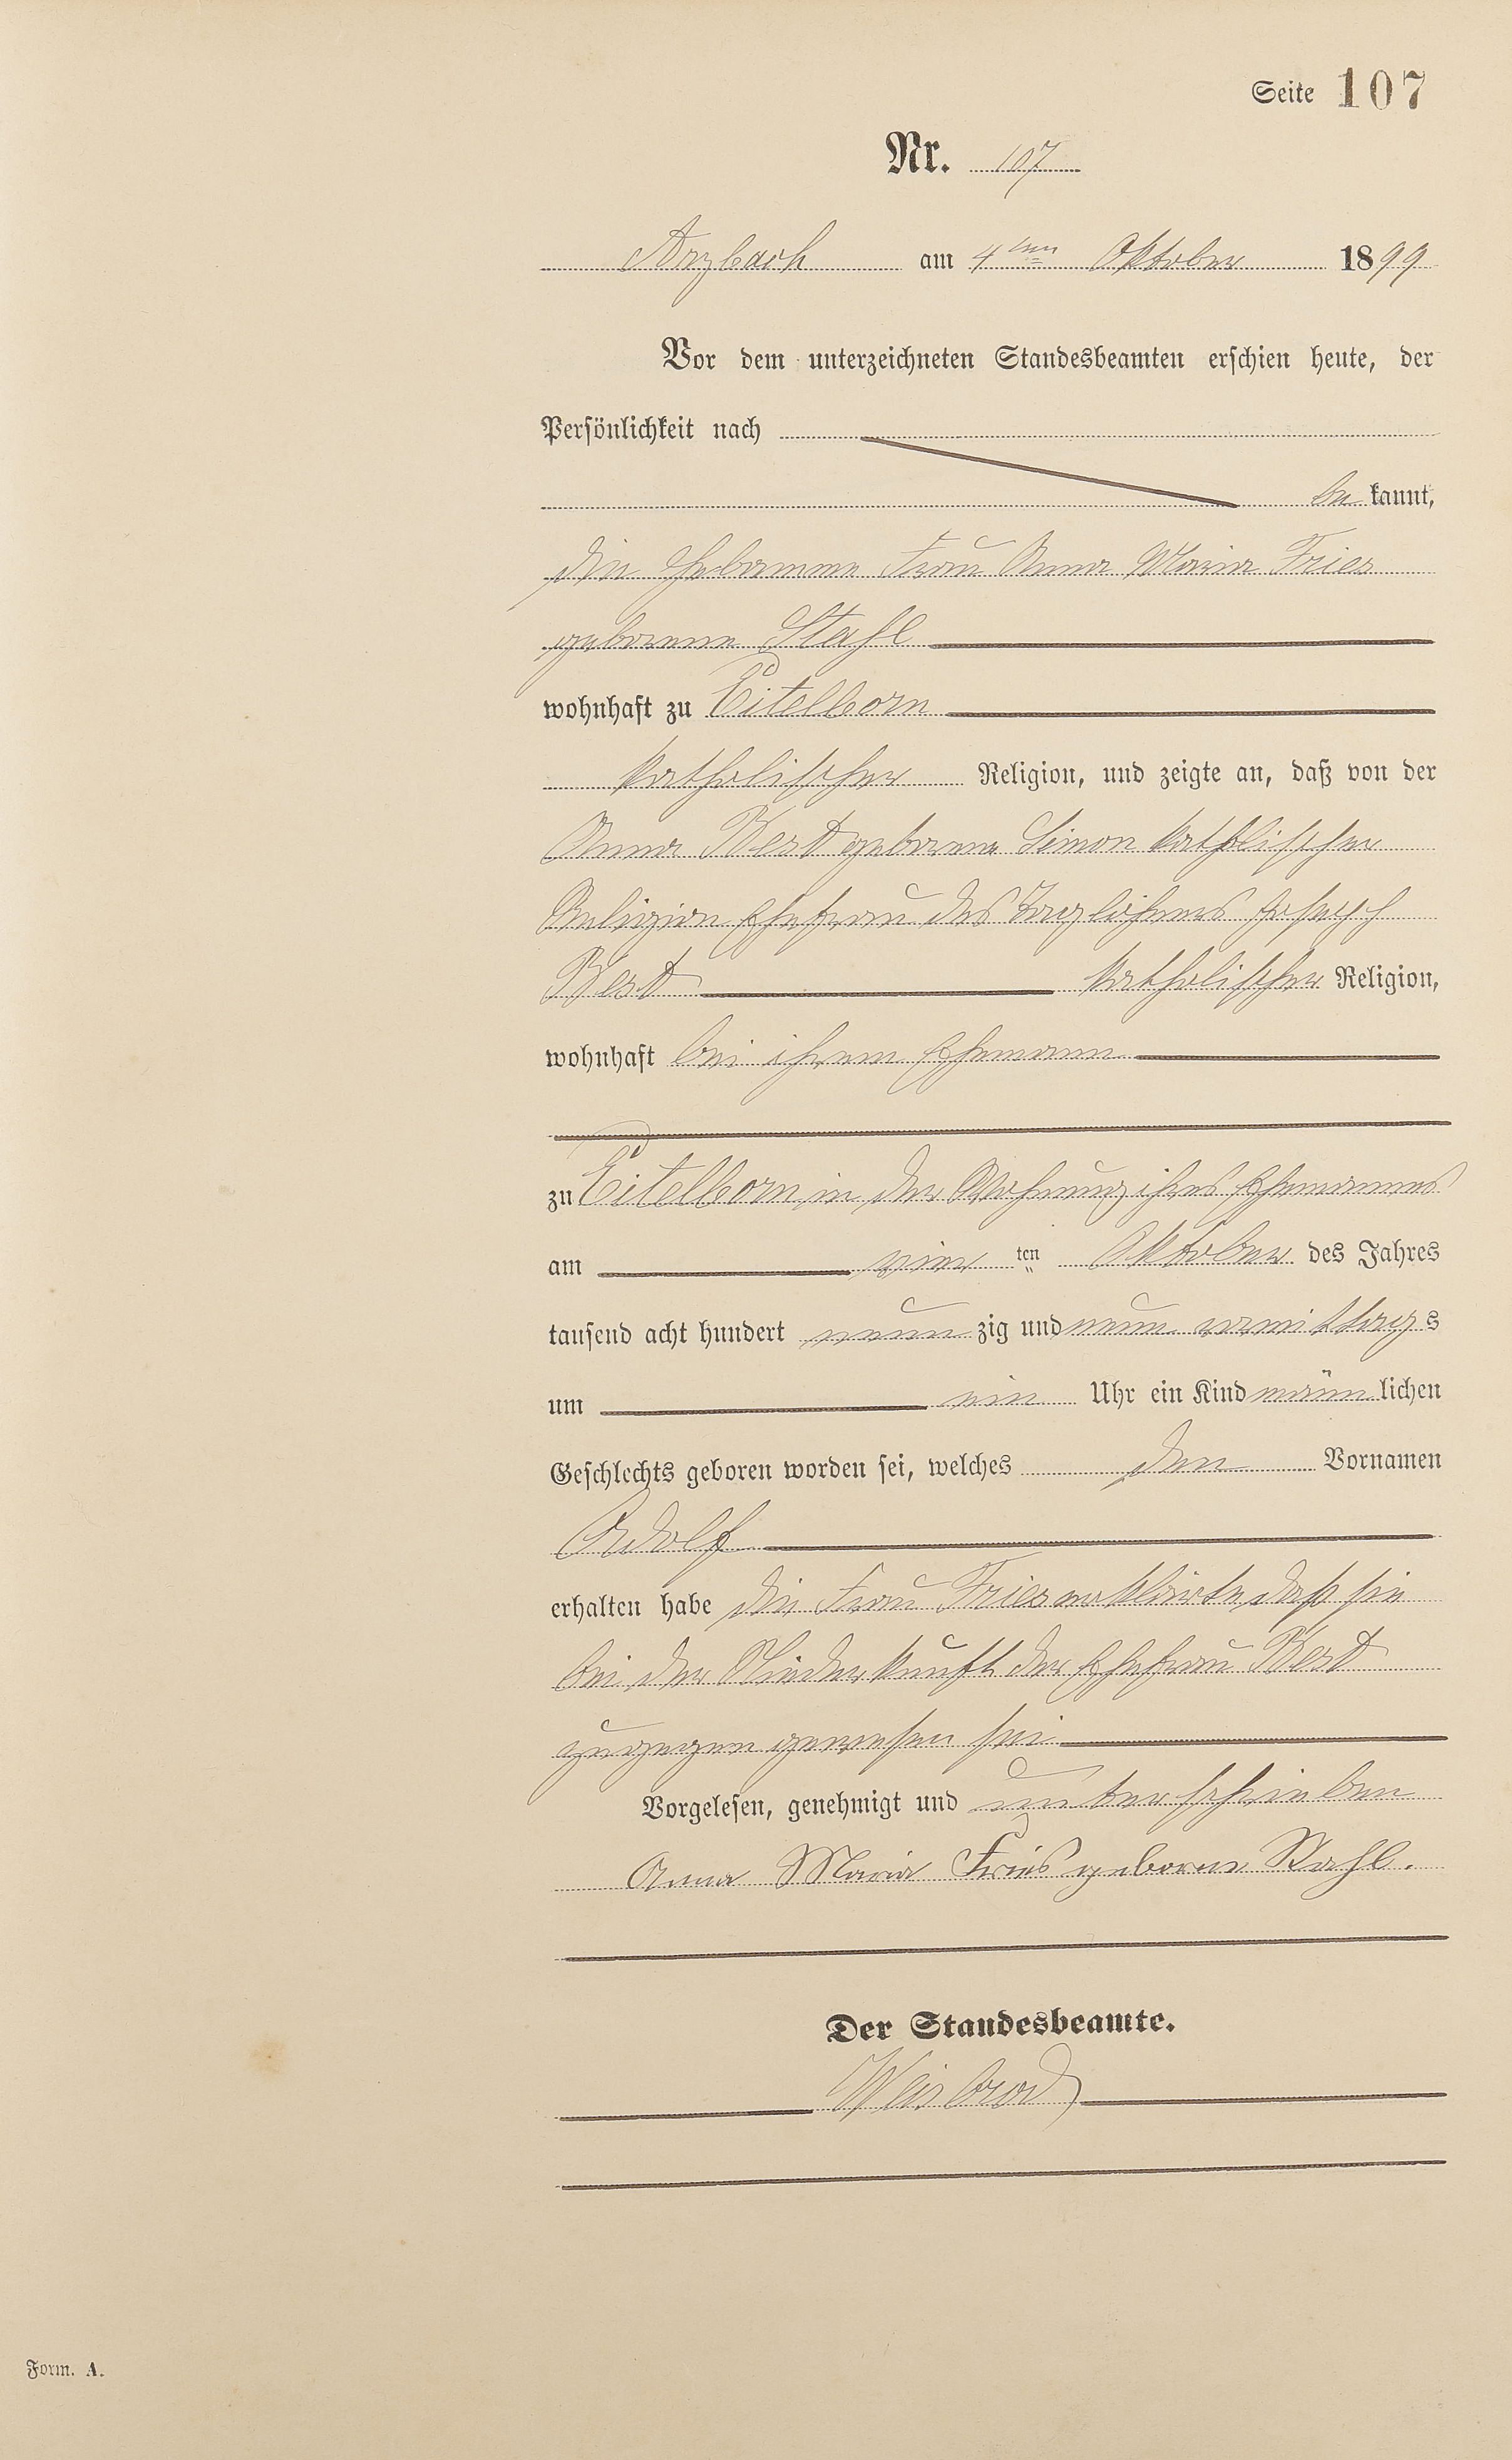 Seite 107
Nr. 107
Arzbach am 4ten Oktober 1899
Vor dem unterzeichneten Standesbeamten erschien heute, der
Persönlichkeit nach
be kannt,
die Hebamme Frau Anna Maria Fries
geborene Stahl
wohnhaft zu Eitelborn
katholischer Religion, und zeigte an, daß von der
Anna Best geborene Simon katholischer
Religion Ehefrau des Taglöhners Joseph
Best katholischer Religion,
wohnhaft bei ihrem Ehemann
zu Eitelborn in der Wohnung ihres Ehemannes
am vier ten Oktober des Jahres
tausend acht hundert neun zig und neun vormittags
um ein Uhr ein Kind männ lichen
Geschlechts geboren worden sei, welches den Vornamen
Adolf
erhalten habe die Frau Fries erklärte, daß sie
bei der Niederkunft der Ehefrau Best
zugegen gewesen sei
Vorgelesen, genehmigt und unterschrieben
Anna Maria Fries geborene Stahl.
Der Standesbeamte.
Weisbrod
Form. A.